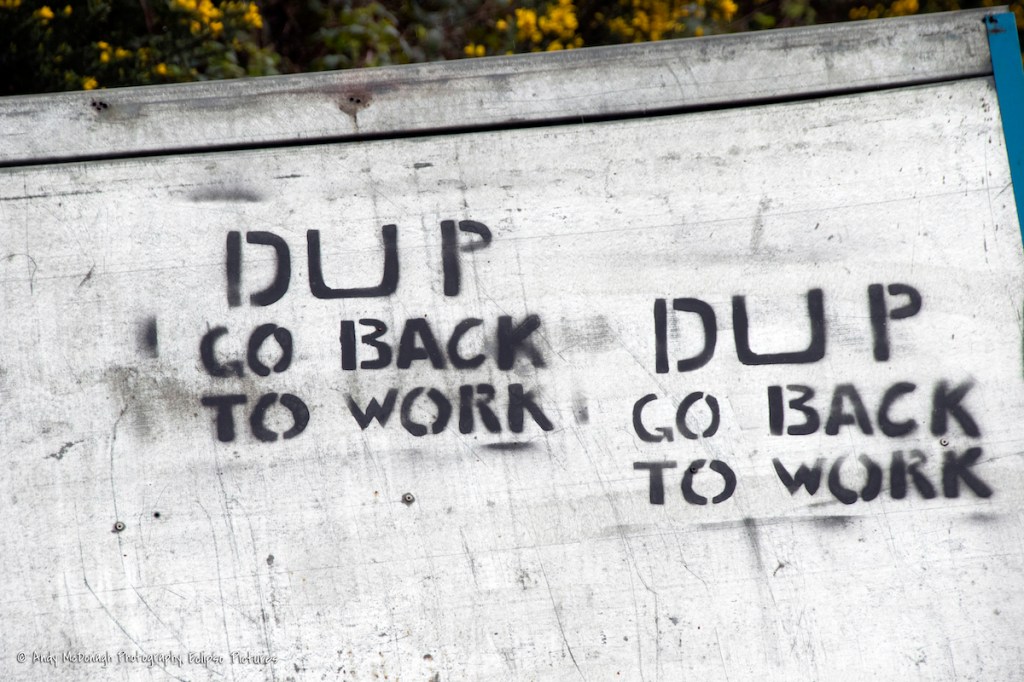 DUP
GO BACK
TO WORK
DUP
GO BACK
TO WORK
© Andy McDonagh Photography, Eclipse Pictures